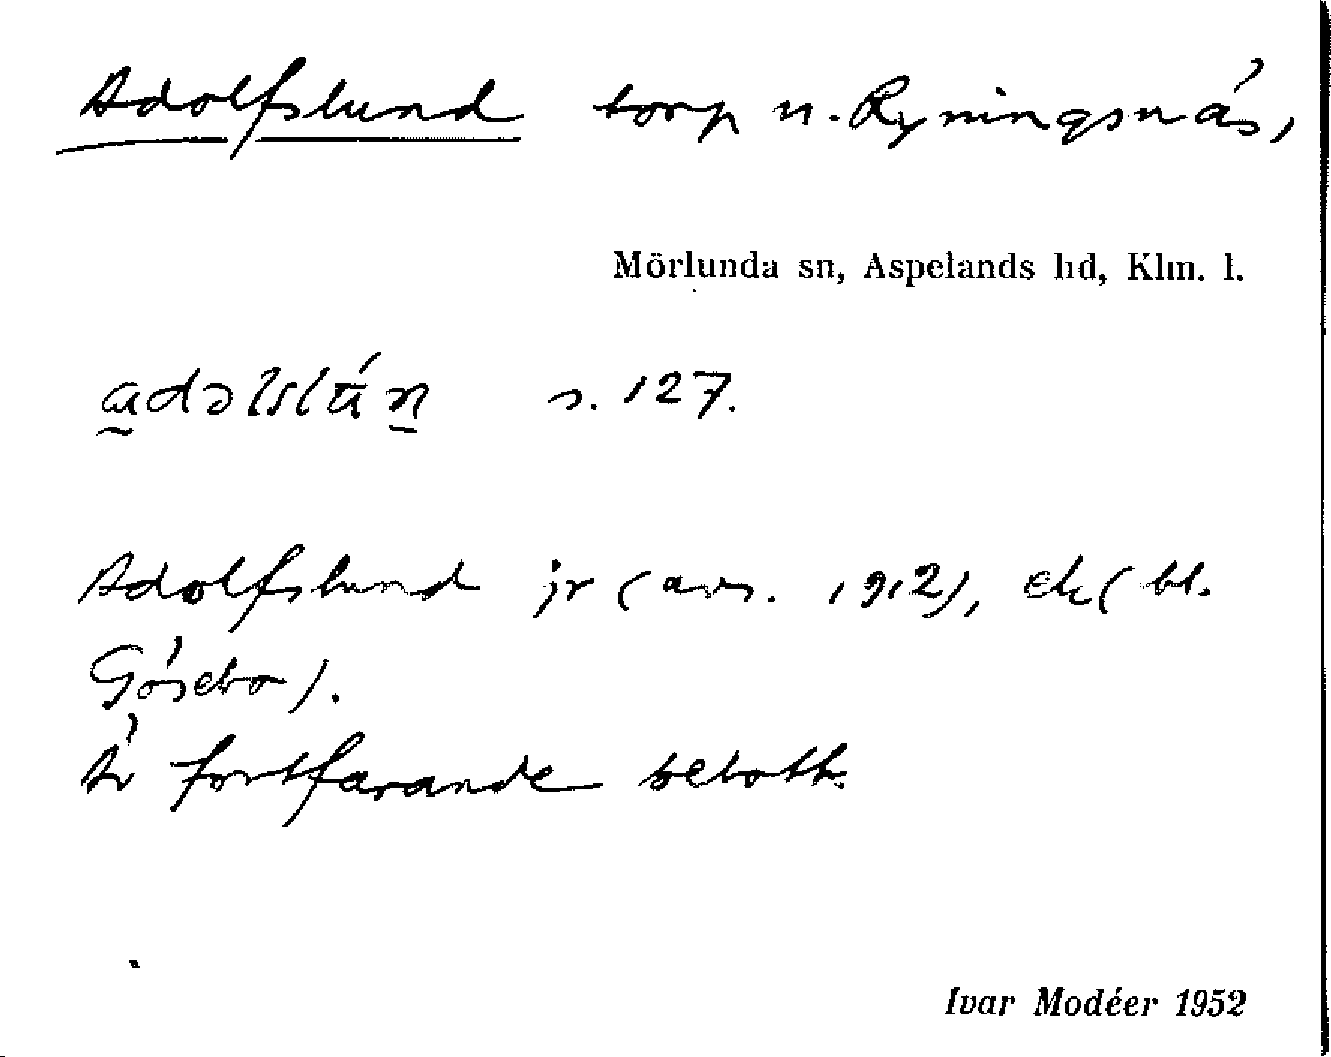 Adolfslund torp u. Ryningsnäs,
Mörlunda sn, Aspelands hd, Klm. l.
s. 127.
Adolfslund jr (avs. 1912), ek (bl.
Gösebo).
Är fortfarande bebott.
Ivar Modéer 1952